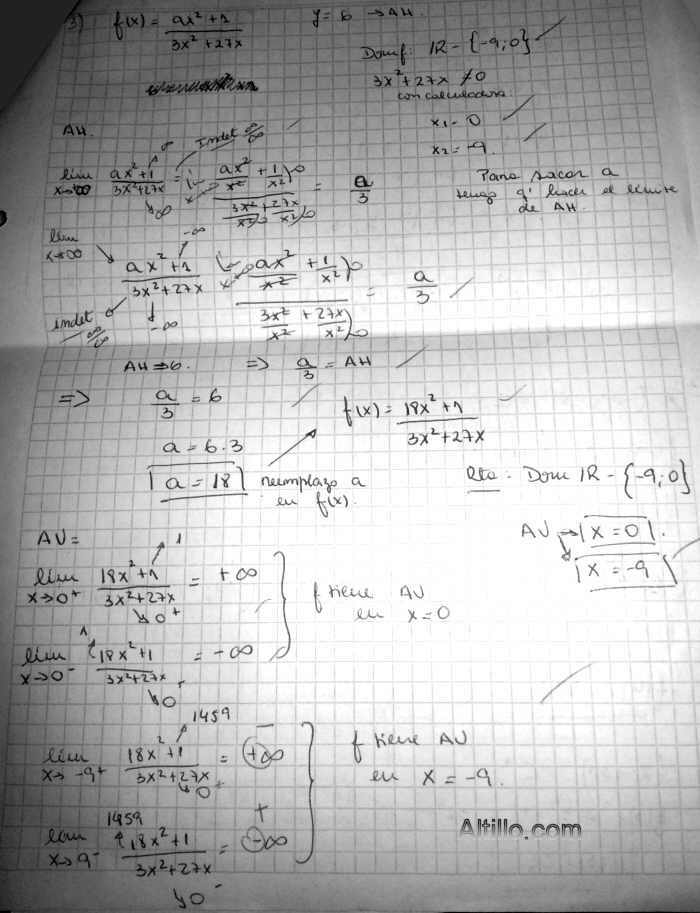 3) f(x) = ax²+1 / 3x²+27x   y = 6 → AH.
Dom f: IR - {-9; 0}
3x²+27x ≠ 0
con calculadora.
x₁ = 0
x₂ = -9.
AH.
Indet ∞/∞
lím x→∞ ax²+1 / 3x²+27x = ax²/x² + 1/x² / 3x²/x² + 27x/x² = a/3
Para sacar a
tengo q' hacer el límite
de AH.
lím x→-∞ ax²+1 / 3x²+27x = ax²/x² + 1/x² / 3x²/x² + 27x/x² = a/3
indet ∞/∞
AH ⇒ 6. ⇒ a/3 = AH
⇒ a/3 = 6
f(x) = 18x²+1 / 3x²+27x
a = 6.3
a = 18 reemplazo a
en f(x).
Rta: Dom IR - {-9; 0}
AV → x = 0.
x = -9
AV =
lím x→0⁺ 18x²+1 / 3x²+27x = +∞
f tiene AV
en x=0
lím x→0⁻ 18x²+1 / 3x²+27x = -∞
1459
lím x→-9⁺ 18x²+1 / 3x²+27x = +∞
f tiene AV
en x = -9.
1459
lím x→9⁻ 18x²+1 / 3x²+27x = -∞
Altillo.com